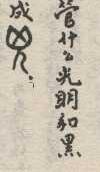 管什么光明和黑
成凶？